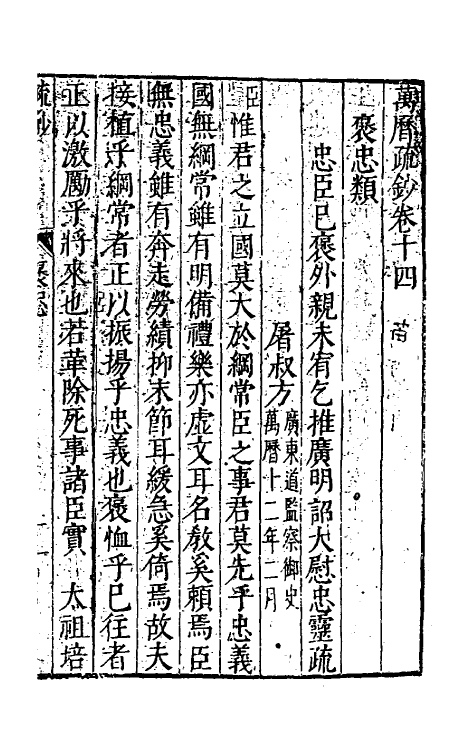 萬曆疏鈔卷十四
褒忠類
忠臣已褒外親未宥乞推廣明詔大慰忠靈疏
屠叔方
廣東道監察御史
萬曆十二年二月
臣惟君之立國莫大於綱常臣之事君莫先乎忠義
國無綱常雖有明備禮樂亦虛文耳名教奚賴焉臣
無忠義雖有奔走勞績抑末節耳緩急奚倚焉故夫
接植乎綱常者正以振揚乎忠義也褒恤乎已往者
正以激勵乎將來也若革除死事諸臣實 太祖培
疏鈔
褒忠